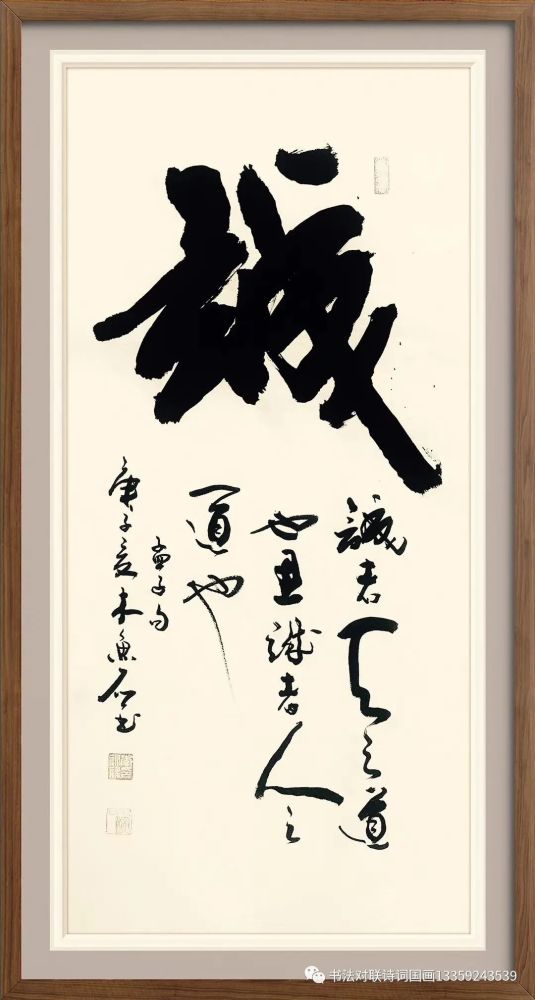 誠
誠者天之道
也思誠者人之
道也
孟子句
庚子夏木魚石书
书法对联诗词国画13359243539